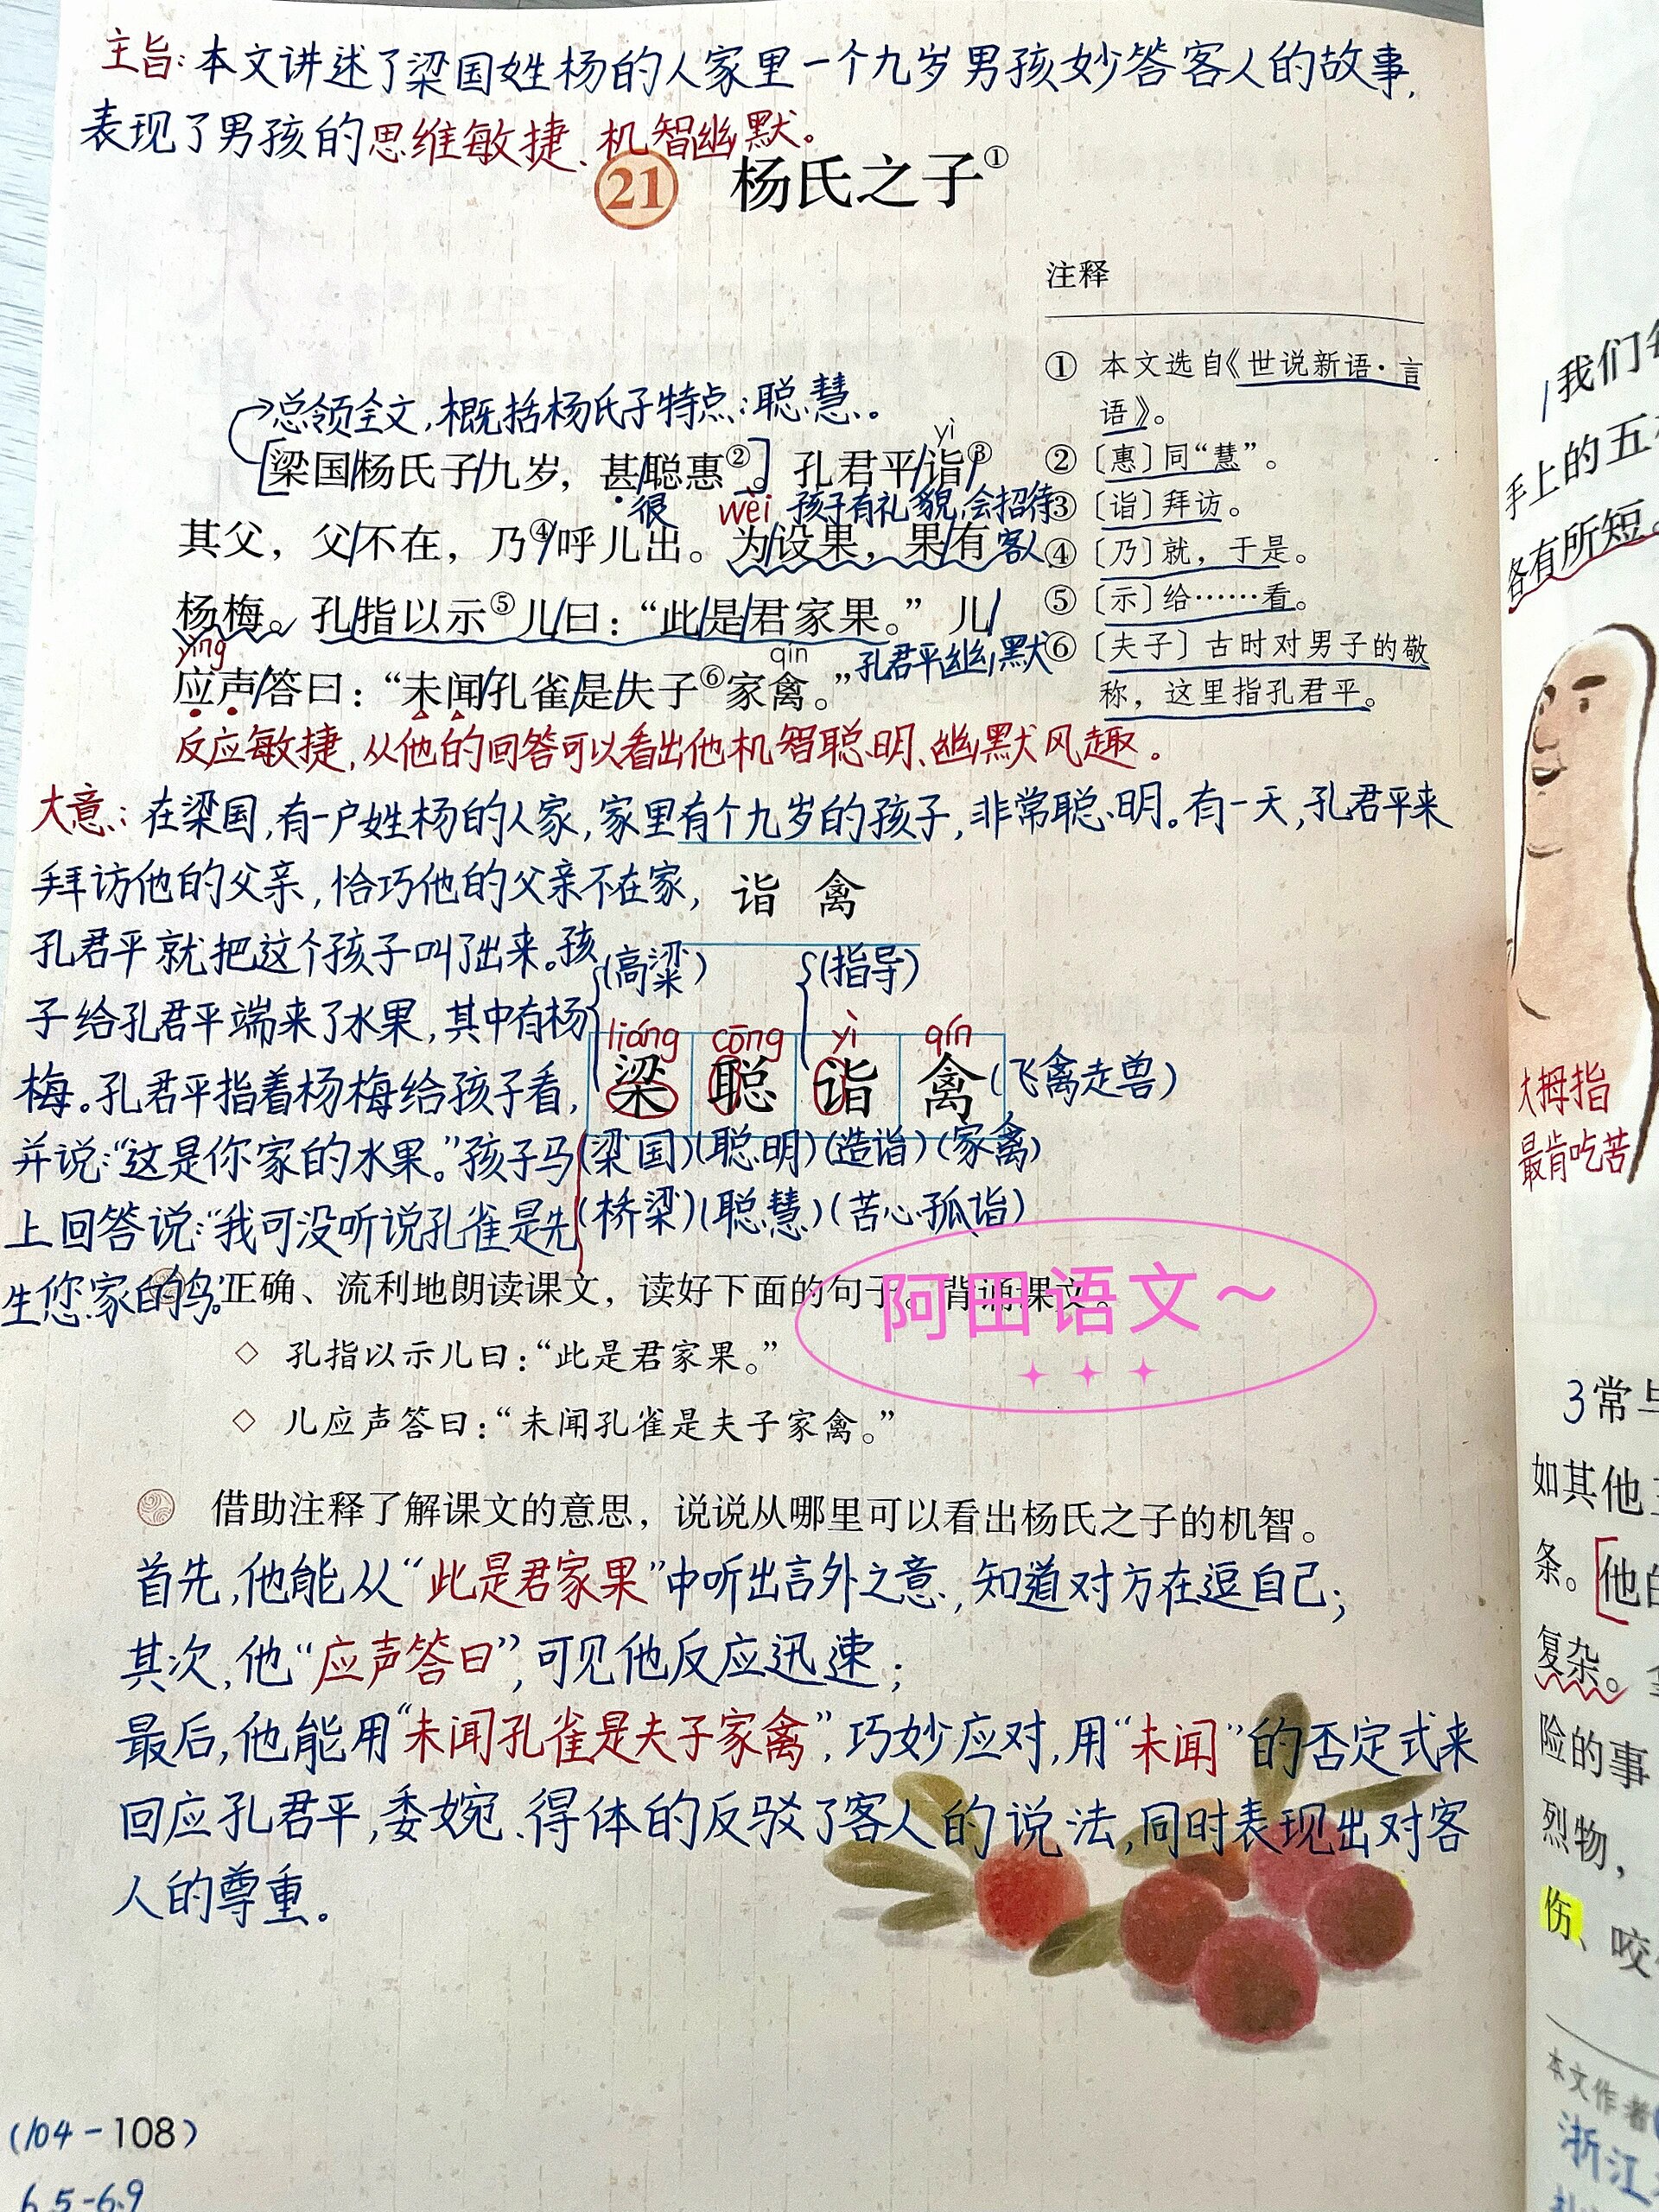 主旨:本文讲述了梁国姓杨的人家里一个九岁男孩妙答客人的故事,
表现了男孩的思维敏捷、机智幽默。
21 杨氏之子①
注释
① 本文选自《世说新语·言
语》。
② 〔惠〕同“慧”。
③ 〔诣〕拜访。
④ 〔乃〕就，于是。
⑤ 〔示〕给……看。
⑥ 〔夫子〕古时对男子的敬
称，这里指孔君平。
总领全文,概括杨氏子特点:聪慧。
yì
[梁国/杨氏子/九岁，甚/聪惠②。] 孔君平/诣③/
很 wèi 孩子有礼貌,会招待
客人
其父，父/不在，乃④/呼儿出。为/设果，果/有
杨梅。孔/指以示⑤儿/曰：“此/是/君家果。” 儿/
yìng qín 孔君平幽默
应声/答曰：“未闻/孔雀/是/夫子⑥家禽。”
反应敏捷,从他的回答可以看出他机智聪明、幽默风趣。
大意:在梁国,有一户姓杨的人家,家里有个九岁的孩子,非常聪明。有一天,孔君平来
拜访他的父亲,恰巧他的父亲不在家,
孔君平就把这个孩子叫了出来。孩
子给孔君平端来了水果,其中有杨
梅。孔君平指着杨梅给孩子看,
并说:“这是你家的水果。”孩子马
上回答说:“我可没听说孔雀是先
生您家的鸟。”
诣 禽
(高粱) (指导)
liáng cōng yì qín
梁 聪 诣 禽 (飞禽走兽)
(梁国)(聪明)(造诣)(家禽)
(桥梁)(聪慧)(苦心孤诣)
正确、流利地朗读课文，读好下面的句子。背诵课文。
阿田语文～
◇ 孔指以示儿曰：“此是君家果。”
◇ 儿应声答曰：“未闻孔雀是夫子家禽。”
借助注释了解课文的意思，说说从哪里可以看出杨氏之子的机智。
首先,他能从“此是君家果”中听出言外之意,知道对方在逗自己;
其次,他“应声答曰”,可见他反应迅速;
最后,他能用“未闻孔雀是夫子家禽”,巧妙应对,用“未闻”的否定式来
回应孔君平,委婉、得体的反驳了客人的说法,同时表现出对客
人的尊重。
(104-108)
6.5-6.9
我们
手上的五
各有所短。
大拇指
最肯吃苦
3常与
如其他
条。[他的
复杂。
险的事
烈物，
伤、咬
本文作者
浙江